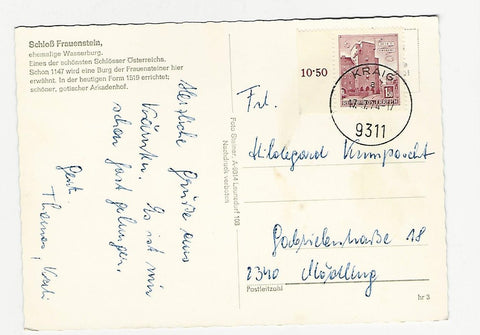 Schloß Frauenstein,
ehemalige Wasserburg.
Eines der schönsten Schlösser Österreichs.
Schon 1147 wird eine Burg der Frauensteiner hier
erwähnt. In der heutigen Form 1519 errichtet;
schöner, gotischer Arkadenhof.
Herzliche Grüße aus
Kärnten. Es ist mir
schon fast gelungen.
Thomas,
Foto Steiner, A-9314 Launsdorf 108
Nachdruck verboten
10·50
KRAIG
9311
Frl.
Hildegard
Gabrielerstraße 18
2340 Mödling
Postleitzahl
hr 3